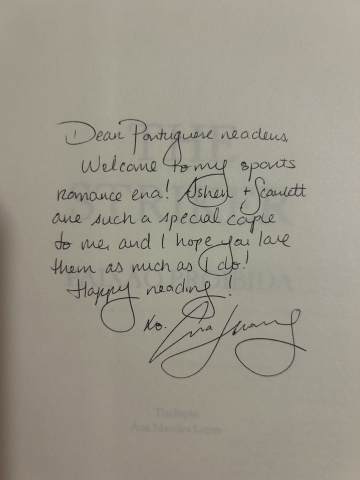 Dear Portuguese readers,
Welcome to my sports
romance era! Asher + Scarlett
are such a special couple
to me, and I hope you love
them as much as I do!
Happy reading!
xo.
Tradução
Ana Mendes Lopes